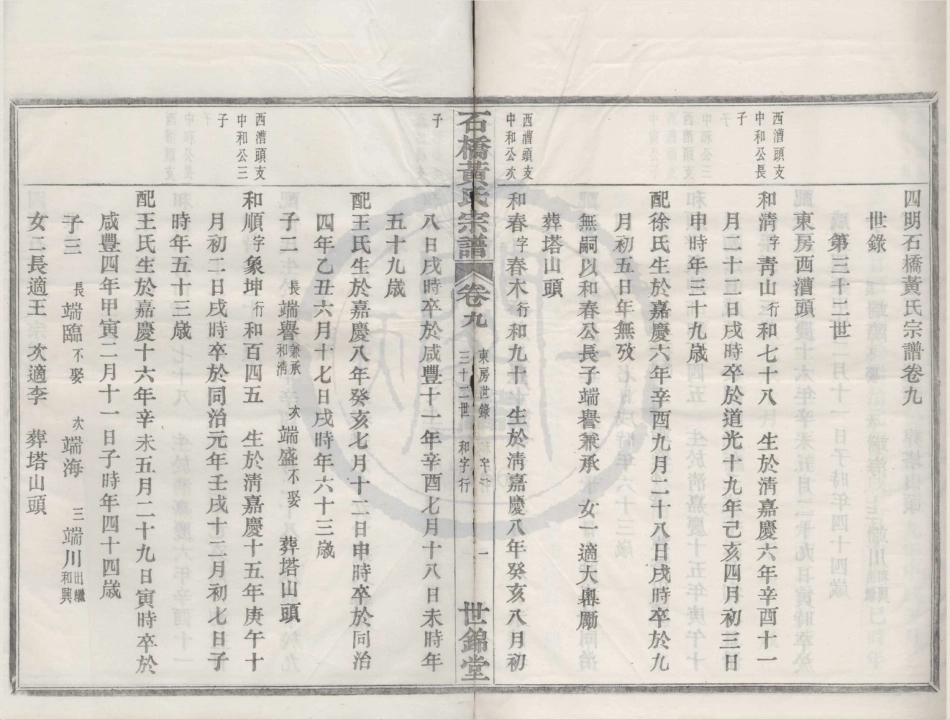 四明石橋黃氏宗譜卷九
世錄
第三十二世
東房西漕頭
西漕頭支
中和公長
子
和清字青山行和七十八 生於清嘉慶六年辛酉十一
月二十二日戌時卒於道光十九年己亥四月初三日
申時年三十九歲
配徐氏生於嘉慶六年辛酉九月二十八日戌時卒於九
月初五日年無攷
無嗣以和春公長子端譽兼承 女一適大㯭勵
葬塔山頭
西漕頭支
中和公次
子
和春字春木行和九十 生於清嘉慶八年癸亥八月初
石橋黃氏宗譜 卷九 東房世錄 三十二世 和字行 一 世錦堂
八日戌時卒於咸豐十一年辛酉七月十八日未時年
五十九歲
配王氏生於嘉慶八年癸亥七月十二日申時卒於同治
四年乙丑六月十七日戌時年六十三歲
子二 長端譽兼承和清 次端盛不娶 葬塔山頭
西漕頭支
中和公三
子
和順字象坤行和百四五 生於清嘉慶十五年庚午十
月初二日戌時卒於同治元年壬戌十二月初七日子
時年五十三歲
配王氏生於嘉慶十六年辛未五月二十九日寅時卒於
咸豐四年甲寅二月十一日子時年四十四歲
子三 長端臨不娶 次端海 三端川出繼和興
女二長適王 次適李 葬塔山頭